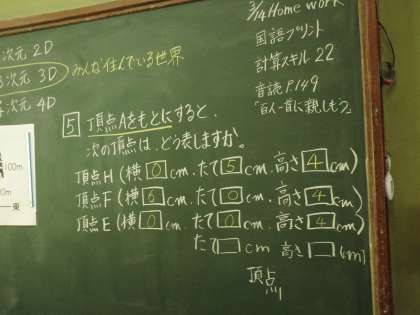 次元 2D
次元 3D
次元 4D
みんな住んでいる世界
3/14 Home work
国語プリント
計算スキル 22
音読 P.149
「百人一首に親しもう」
5 頂点Aをもとにすると、
次の頂点は、どう表しますか。
頂点H(横 0 cm.たて 5 cm.高さ 4 cm)
頂点F(横 6 cm.たて 0 cm.高さ 4 cm)
頂点E(横 0 cm.たて 0 cm.高さ 4 cm)
たて cm 高さ (cm)
頂点
100m
00m
東